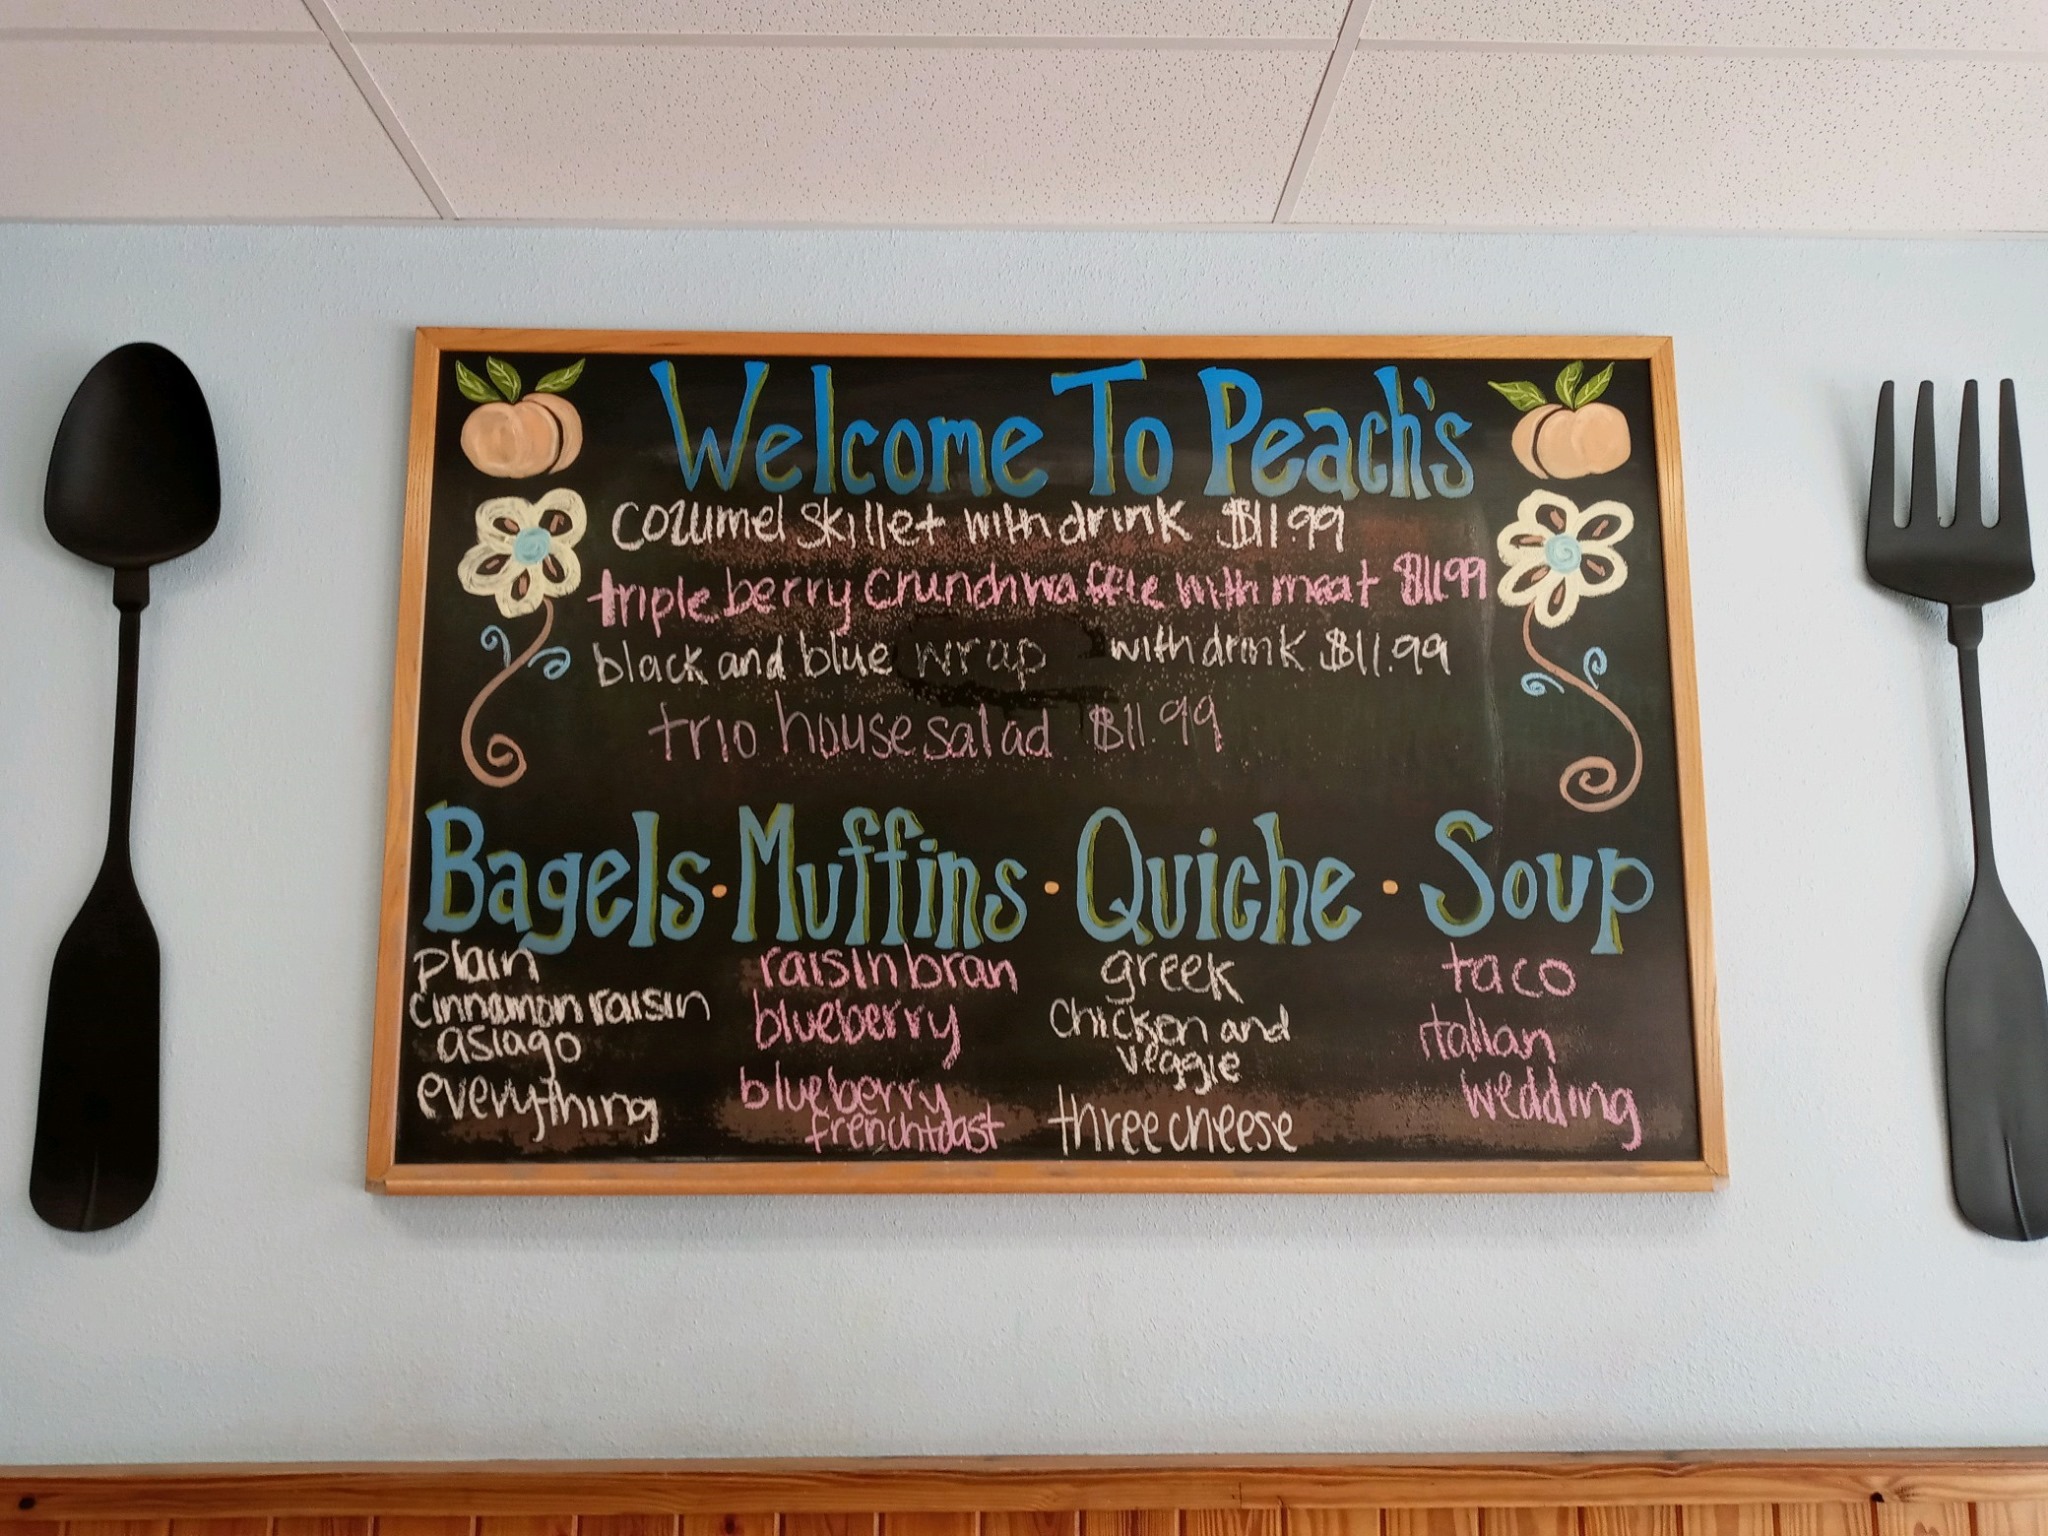 Welcome To Peach's
cozumel skillet with drink $11.99
triple berry crunch waffle with meat $11.99
black and blue wrap with drink $11.99
trio house salad $11.99
Bagels · Muffins · Quiche · Soup
plain
cinnamon raisin
asiago
everything
raisin bran
blueberry
blueberry
french toast
greek
chicken and
veggie
three cheese
taco
italian
wedding